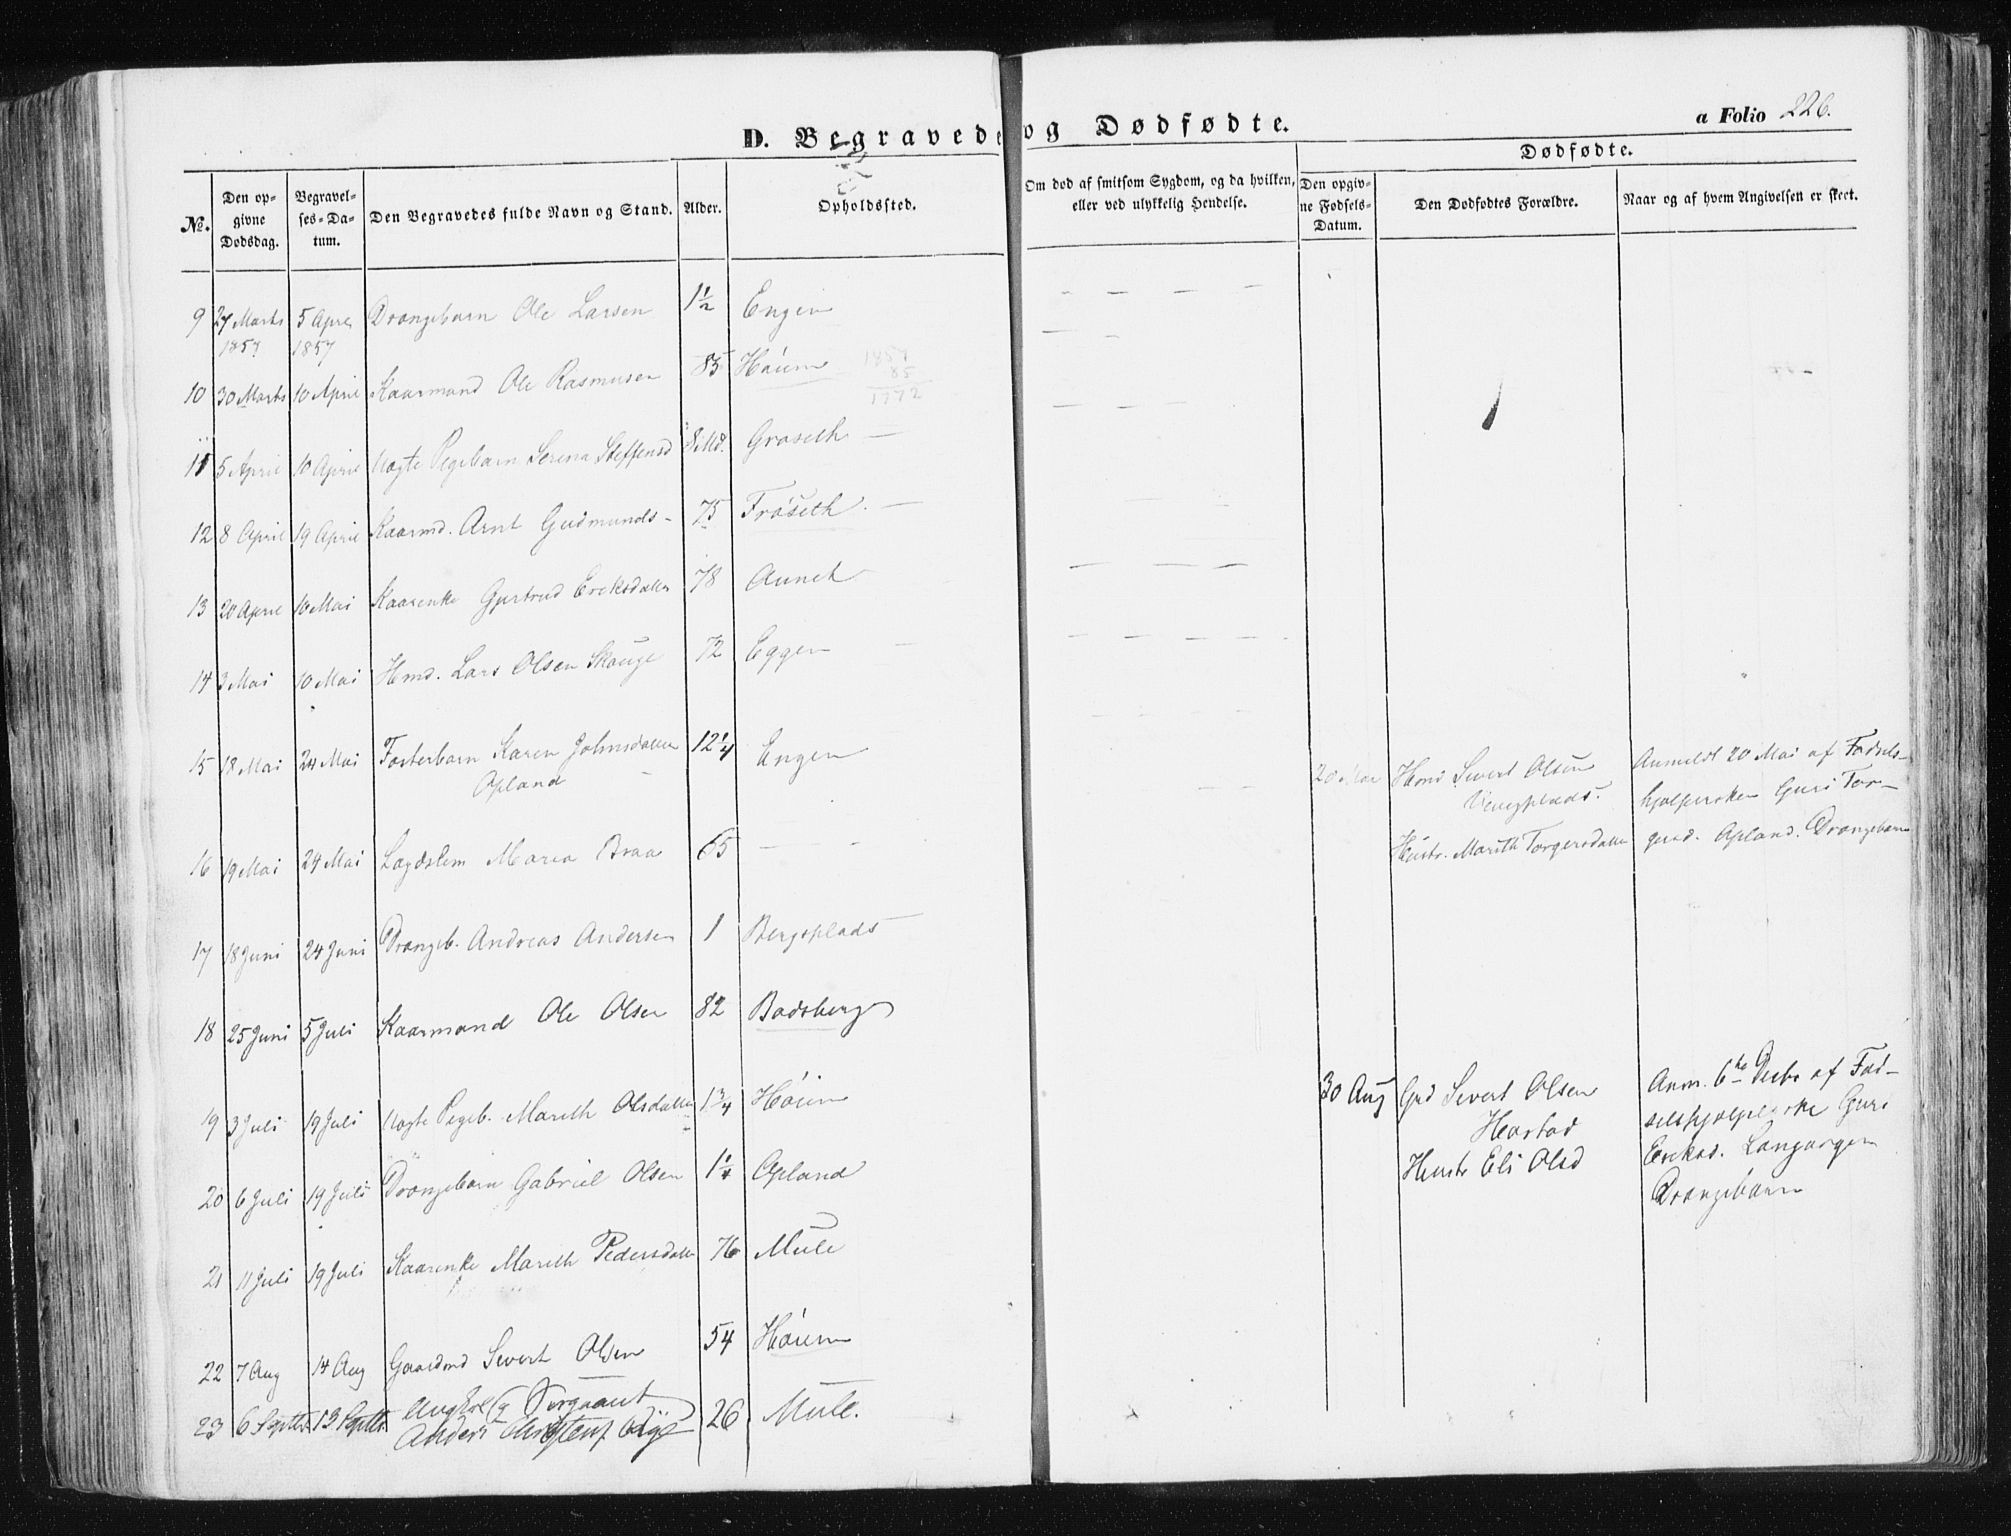 D. Begravede og Dødfødte.
a Folio 226.
Dødfødte.
№.
Den opgivne Dødsdag.
Begravelses-Datum.
Den Begravedes fulde Navn og Stand.
Alder.
Opholdssted.
Om død af smitsom Sygdom, og da hvilken, eller ved ulykkelig Hendelse.
Den opgivne Fødsels-Datum.
Den Dødfødtes Forældre.
Naar og af hvem Angivelsen er skeet.
9 27 Marts 1857 5 April 1857 Drængebarn Ole Larsen 1½ Engen
10 30 Marts 10 April Kaarmand Ole Rasmusen 85 Høiem
1857
85
1772
11 5 April 10 April Uægte Pigebarn Serena Steffensd 8 Md. Graseth
12 8 April 19 April Kaarmd. Arnt Gudmunds- 75 Frøseth
13 20 April 10 Mai Kaarenke Gjertrud Ericksdatter 78 Aunet
14 3 Mai 10 Mai Hmd. Lars Olsen Skauge 72 Eggen
15 18 Mai 24 Mai Fosterbarn Karen Johnsdatter 12¼ Engen
Opland
20 Mai Hmd Sivert Olsen
Anmeldt 20 Mai af Fødsels-
hjælpersken Guri Tor-
Hustr. Marith Torgersdatter
gersd. Opland. Drængebarn
16 19 Mai 24 Mai Lægdslem Maria Braa 65
17 18 Juni 24 Juni Drængeb. Andreas Andersen 1 Bergsplads
18 25 Juni 5 Juli Kaarmand Ole Olsen 82 Badsberg
19 3 Juli 19 Juli Uægte Pigeb. Marith Olsdatter 1¾ Høiem
30 Aug Grd Sivert Olsen
Hastad
Hustr Eli Olsd
Anm. 6te Decbr af Fød-
selshjælperske Guri
Ericksd. Langørgen
Drængebarn
20 6 Juli 19 Juli Drængebarn Gabriel Olsen 1¼ Opland
21 11 Juli 19 Juli Kaarenke Marith Pedersdatter 76 Mule
22 7 Aug 14 Aug Gaardmd Sivert Olsen 54 Høiem
23 6 Septbr 13 Septbr Ungkarl og Sergeant 26 Mule.
Anders